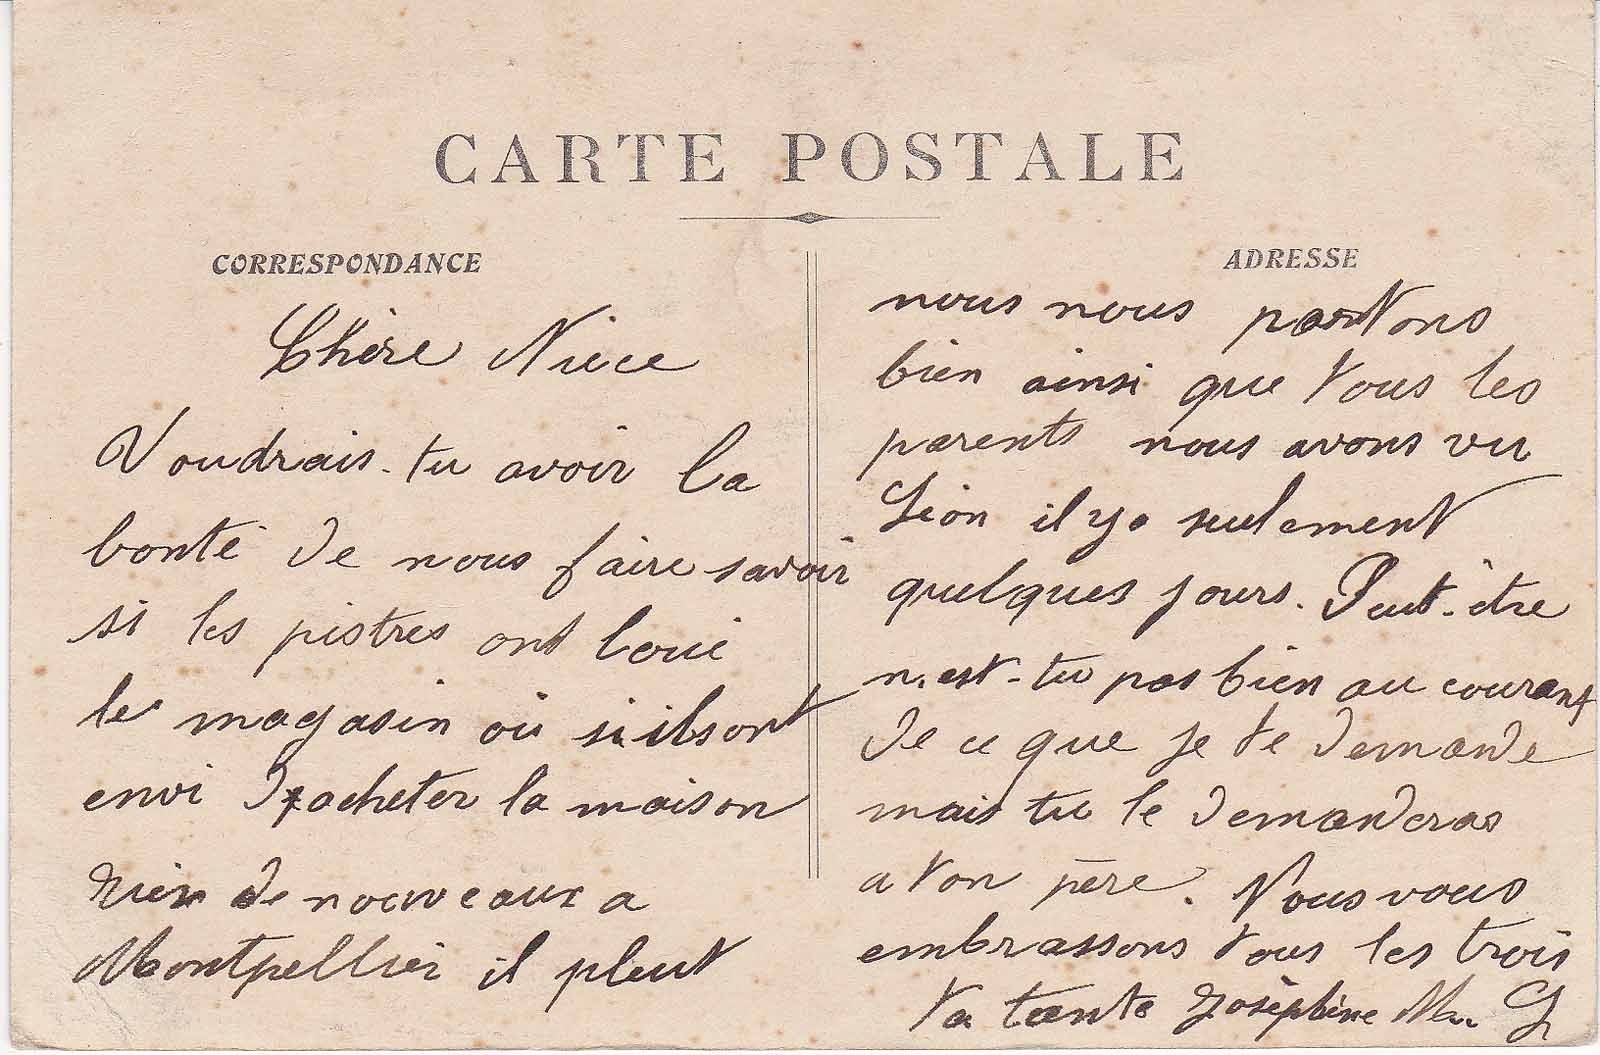 CARTE POSTALE
CORRESPONDANCE
Chère Nièce
Voudrais-tu avoir la
bonté de nous faire savoir
si les pistres ont loué
le magasin où si ils ont
envi d'acheter la maison
rien de nouveaux a
Montpellier il pleut
ADRESSE
nous nous portons
bien ainsi que tous les
parents nous avons vu
Léon il y a seulement
quelques jours. Peut-être
n'est-tu pas bien au courant
de ce que je te demande
mais tu le demanderas
a ton père. Nous vous
embrassons tous les trois
Ta tante Joséphine